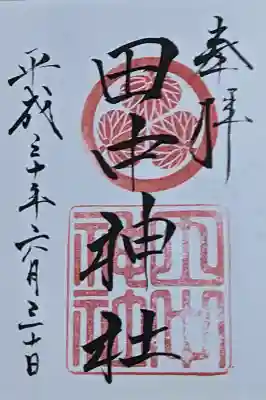 奉拝
田中神社
田中神社
平成三十年六月三十日